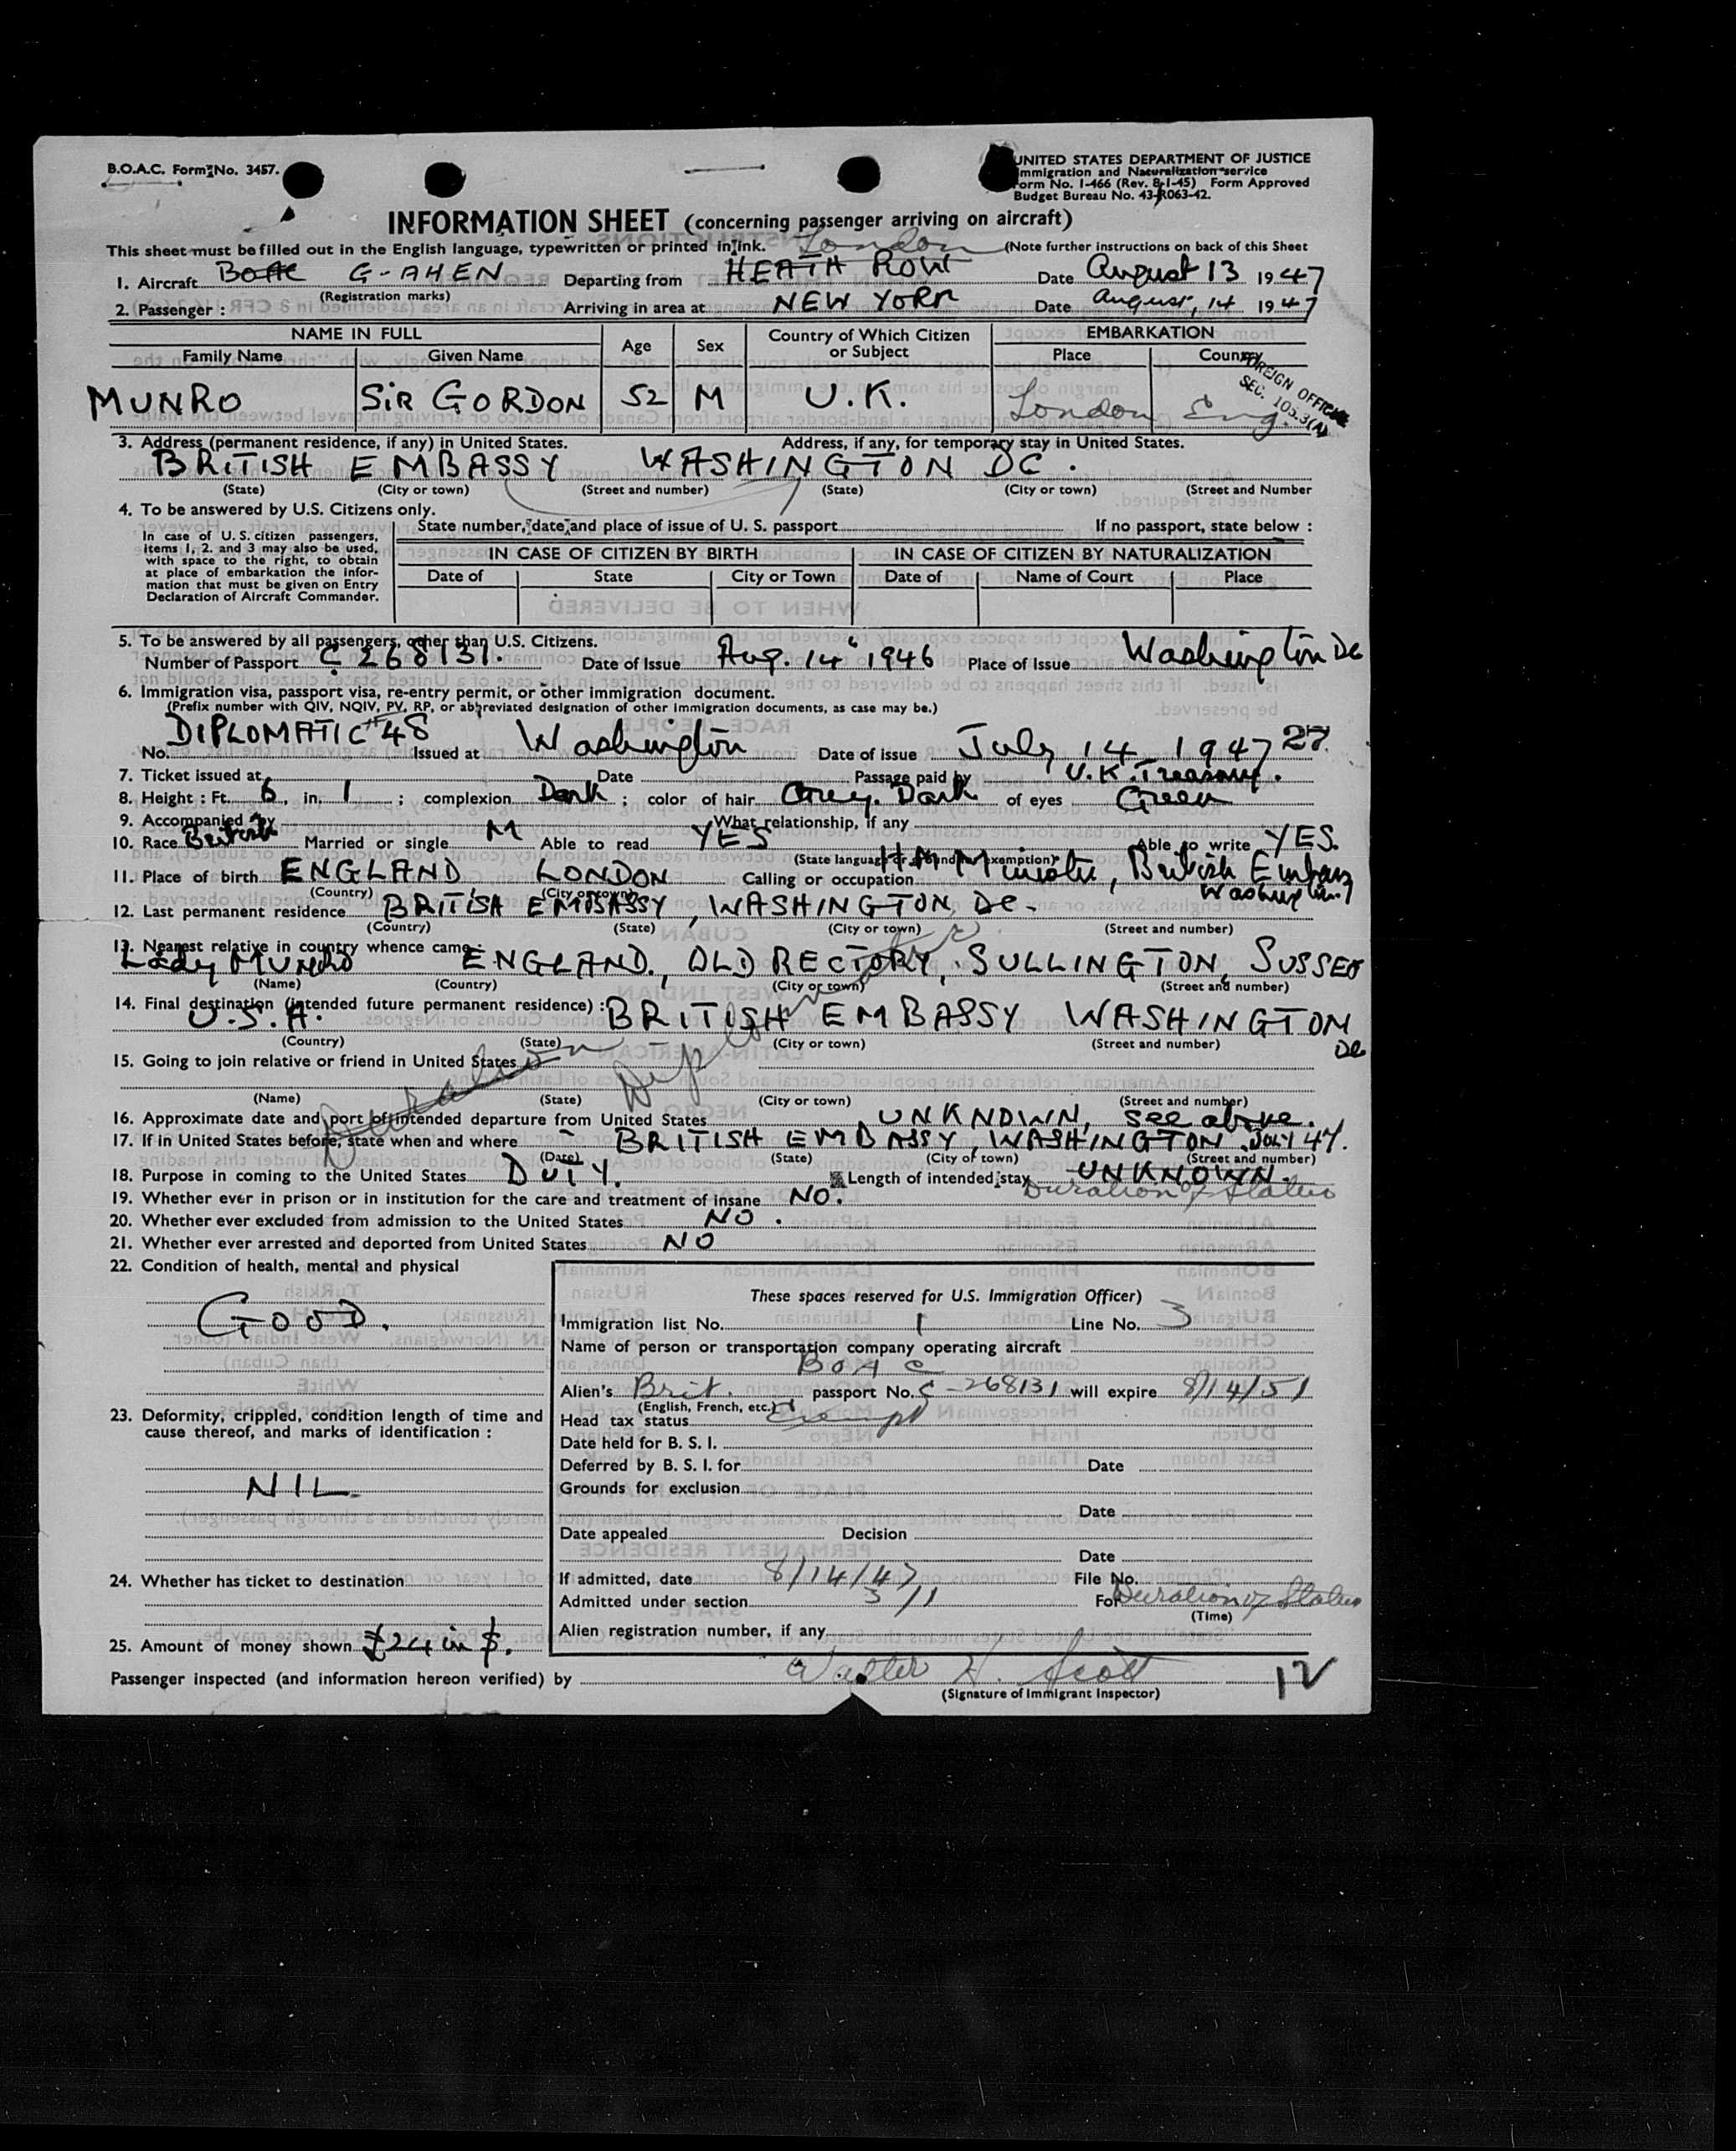 B.O.A.C. Form No. 3457.
UNITED STATES DEPARTMENT OF JUSTICE
Immigration and Naturalization service
Form No. I-466 (Rev. 8-1-45) Form Approved
Budget Bureau No. 43-R063-42.
INFORMATION SHEET (concerning passenger arriving on aircraft)
This sheet must be filled out in the English language, typewritten or printed in ink. London (Note further instructions on back of this Sheet
1. Aircraft BOAC G-AHEN Departing from HEATH ROW Date August 13 1947
(Registration marks)
2. Passenger : Arriving in area at NEW YORK Date August, 14 1947
NAME IN FULL Age Sex Country of Which Citizen or Subject EMBARKATION
Family Name Given Name Place Country
FOREIGN OFFICE
SEC. 105.3(A)
MUNRO SIR GORDON 52 M U.K. London Eng.
3. Address (permanent residence, if any) in United States. Address, if any, for temporary stay in United States.
BRITISH EMBASSY WASHINGTON DC.
(State) (City or town) (Street and number) (State) (City or town) (Street and Number
4. To be answered by U.S. Citizens only.
State number, date, and place of issue of U. S. passport If no passport, state below :
In case of U. S. citizen passengers,
items 1, 2. and 3 may also be used,
with space to the right, to obtain
at place of embarkation the infor-
mation that must be given on Entry
Declaration of Aircraft Commander.
IN CASE OF CITIZEN BY BIRTH IN CASE OF CITIZEN BY NATURALIZATION
Date of State City or Town Date of Name of Court Place
5. To be answered by all passengers, other than U.S. Citizens.
Number of Passport C 268131. Date of Issue Aug. 14 1946 Place of Issue Washington DC
6. Immigration visa, passport visa, re-entry permit, or other immigration document.
(Prefix number with QIV, NQIV, PV, RP, or abbreviated designation of other immigration documents, as case may be.)
No. DIPLOMATIC #48 Issued at Washington Date of issue July 14 1947 27.
7. Ticket issued at Date Passage paid by U.K. Treasury.
8. Height : Ft. 6, in. 1 ; complexion Dark ; color of hair Grey. Dark of eyes Green
9. Accompanied by What relationship, if any
10. Race British Married or single M Able to read YES Able to write YES.
(State language or ground for exemption)
11. Place of birth ENGLAND LONDON Calling or occupation HM Minister, British Embassy Washington
(Country) (City or town)
12. Last permanent residence BRITISH EMBASSY, WASHINGTON, DC.
(Country) (State) (City or town) (Street and number)
13. Nearest relative in country whence came :
Lady MUNRO ENGLAND., OLD RECTORY, SULLINGTON, SUSSEX
(Name) (Country) (City or town) (Street and number)
14. Final destination (intended future permanent residence) : BRITISH EMBASSY WASHINGTON DC
U.S.A.
(Country) (State) (City or town) (Street and number)
15. Going to join relative or friend in United States
(Name) (State) (City or town) (Street and number)
16. Approximate date and port of intended departure from United States UNKNOWN, see above.
17. If in United States before, state when and where - BRITISH EMBASSY WASHINGTON. JULY 47.
(Date) (State) (City or town) (Street and number)
18. Purpose in coming to the United States DUTY. Length of intended stay UNKNOWN.
Duration of Status
19. Whether ever in prison or in institution for the care and treatment of insane NO.
20. Whether ever excluded from admission to the United States NO.
21. Whether ever arrested and deported from United States NO
22. Condition of health, mental and physical
GOOD.
23. Deformity, crippled, condition length of time and
cause thereof, and marks of identification :
NIL.
24. Whether has ticket to destination
25. Amount of money shown £24 in $.
These spaces reserved for U.S. Immigration Officer)
Immigration list No. 1 Line No. 3
Name of person or transportation company operating aircraft
BOAC
Alien's Brit. passport No. C-268131 will expire 8/14/51
(English, French, etc.)
Head tax status Exempt
Date held for B. S. I.
Deferred by B. S. I. for Date
Grounds for exclusion
Date
Date appealed Decision
Date
If admitted, date 8/14/47 File No.
Admitted under section 3/1 For Duration of Status
(Time)
Alien registration number, if any
Passenger inspected (and information hereon verified) by Walter H. Scott 12
(Signature of Immigrant Inspector)